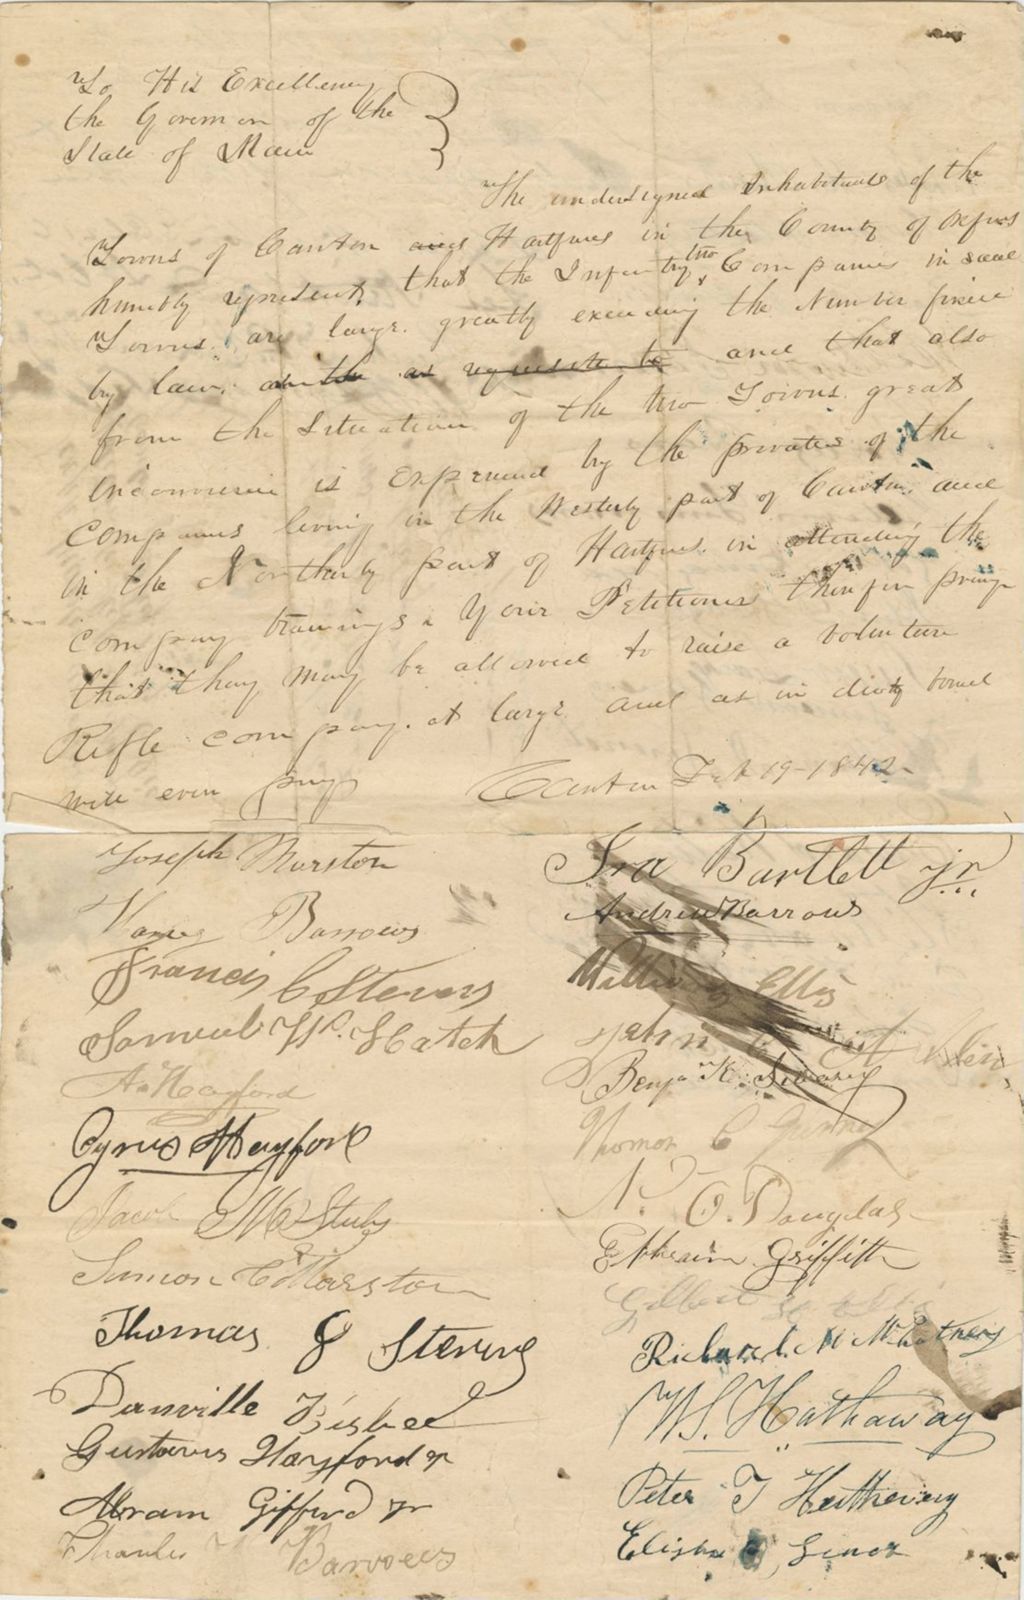 To His Excellency
the Governor of the
State of Maine
The undersigned Inhabitants of the
Towns of Canton and Hartford in the County of Oxford
humbly represent, that the Infantry two Companies in said
Towns are large greatly exceeding the Number fixed
by law, as requisite to and that also
from the Situation of the two Towns great
inconvenience is experienced by the privates of the
companies living in the Westerly part of Canton and
in the Northerly part of Hartford in attending the
company trainings. Your Petitioners therefore pray
that they may be allowed to raise a volunteer
Rifle company at large and as in duty bound
will ever pray
Canton Feb 19-1842-
Joseph Marston
Ira Bartlett jr
Barrows
Andrew Barrows
Francis C Stevens
William Ellis
Samuel W. Hatch
John
A Hayford
Benja K.
Cyrus Hayford
Thomas C
Jacob M
N. O. Douglas
Simon C Marston
Ephraim Griffith
Gilbert
Thomas J Stevens
Richard M
Danville Bisbee
W S. Hathaway
Gustavus Hayford Jr
Peter T Hathaway
Abram Gifford Jr
Elisha
Charles Barrows